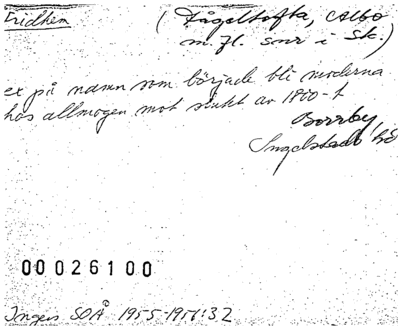 Fridhem
(Fågeltofta, Albo
m.fl. snr i Sk.)
ex på namn som började bli moderna
hos allmogen mot slutet av 1800-t
Borrby,
Ingelstads hd
00026100
Ingers SOÅ 1955-1956:32